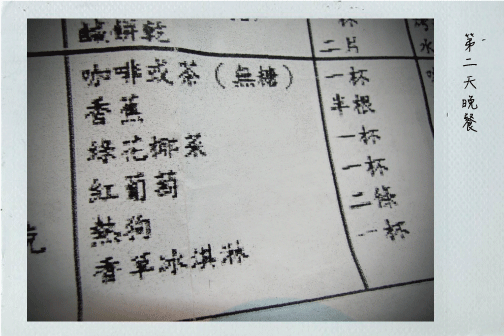 鹹餅乾
二片
咖啡或茶（無糖） 一杯
香蕉 半根
綠花椰菜 一杯
紅葡萄 一杯
熱狗 二條
香草冰淇淋 一杯
第二天晚餐